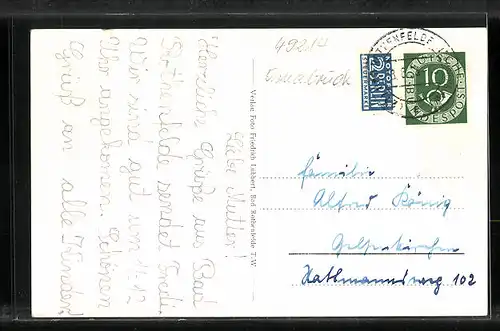 49214
Osnabrück
Liebe Mutter!
Herzliche Grüße aus Bad
Rothenfelde sendet Fredi.
Wir sind gut um 1/2 12
Uhr angekomen. Schönen
Gruß an alle Kinder
Verlag Foto Friedrich Lübbert, Bad Rothenfelde T.W.
NOTOPFER
2 BERLIN
STEUERMARKE
THENFELDE
10
DEUTSCHE
BUNDESPOST
Familie
Alfred König
Gelsenkirchen
Kathmannsweg 102